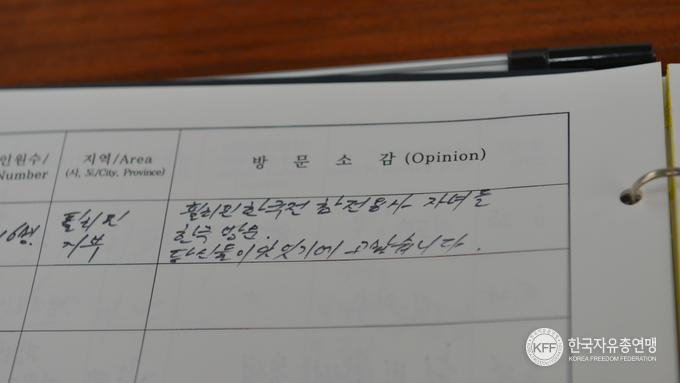 인원수/
Number
지역/Area
(시, 도/City, Province)
방 문 소 감 (Opinion)
16명.
필리핀
지부
필리핀 한국전 참전용사 자녀들
한국 방문.
당신들이 있었기에 고맙습니다.
KFF
한국자유총연맹
KOREA FREEDOM FEDERATION